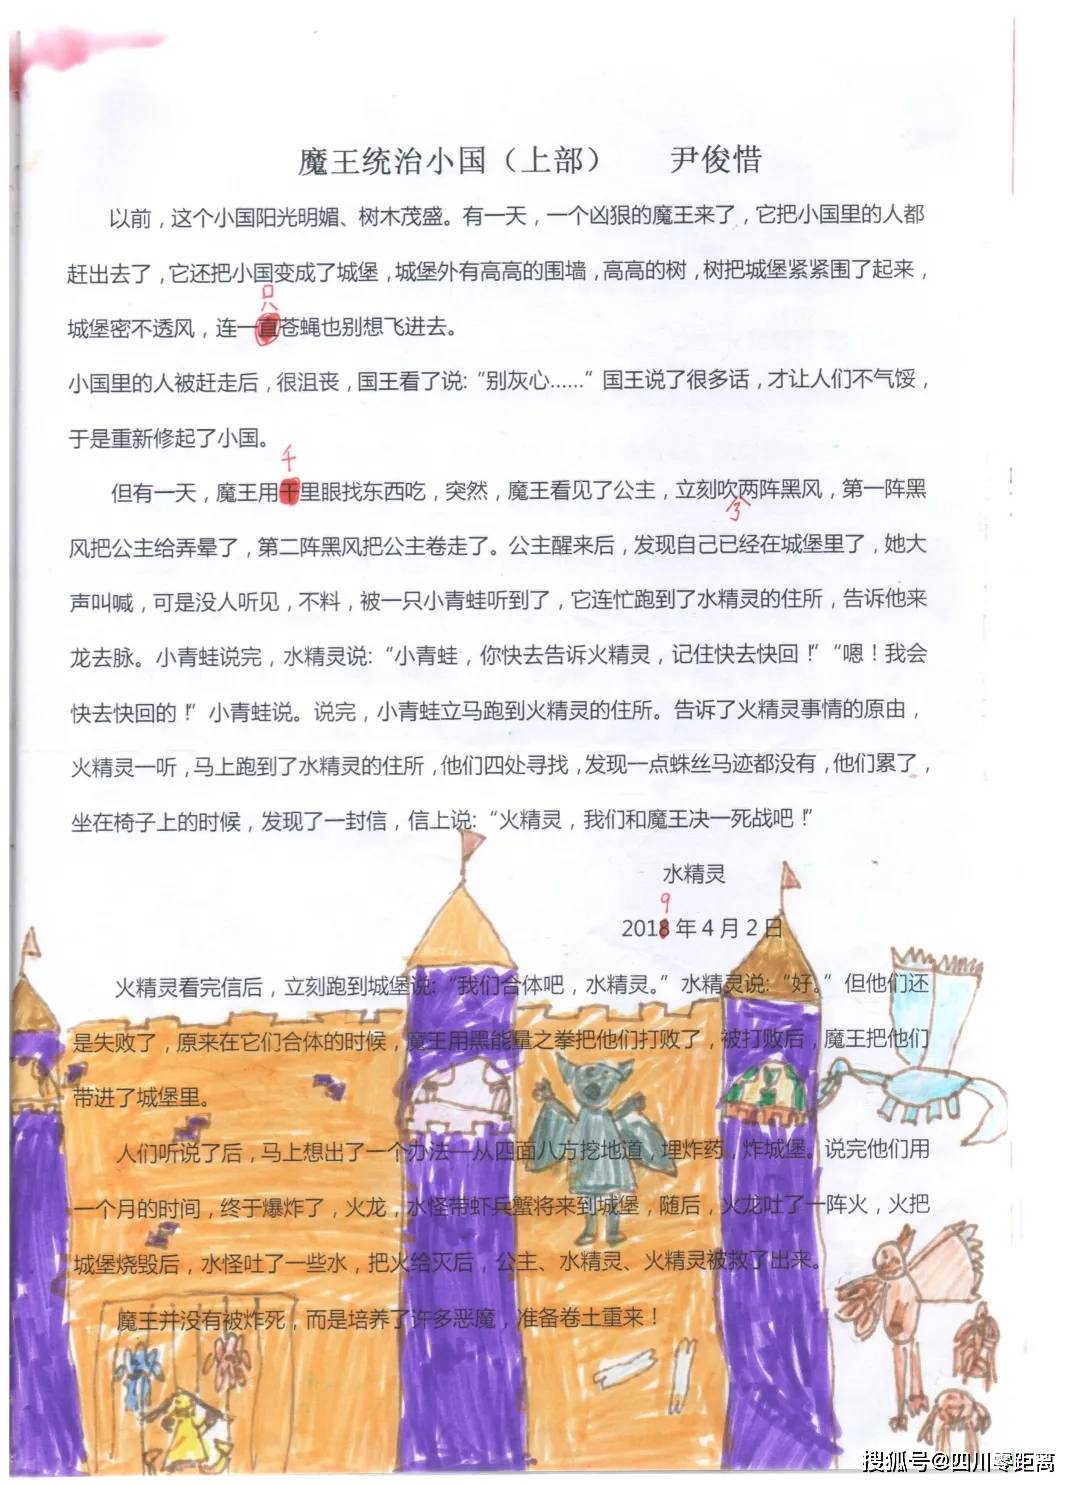 魔王统治小国（上部） 尹俊惜
以前，这个小国阳光明媚、树木茂盛。有一天，一个凶狠的魔王来了，它把小国里的人都
赶出去了，它还把小国变成了城堡，城堡外有高高的围墙，高高的树，树把城堡紧紧围了起来，
只
城堡密不透风，连一直苍蝇也别想飞进去。
小国里的人被赶走后，很沮丧，国王看了说：“别灰心……”国王说了很多话，才让人们不气馁，
于是重新修起了小国。
千
但有一天，魔王用干里眼找东西吃，突然，魔王看见了公主，立刻吹两阵黑风，第一阵黑
了
风把公主给弄晕了，第二阵黑风把公主卷走了。公主醒来后，发现自己已经在城堡里了，她大
声叫喊，可是没人听见，不料，被一只小青蛙听到了，它连忙跑到了水精灵的住所，告诉他来
龙去脉。小青蛙说完，水精灵说：“小青蛙，你快去告诉火精灵，记住快去快回！”“嗯！我会
快去快回的！”小青蛙说。说完，小青蛙立马跑到火精灵的住所。告诉了火精灵事情的原由，
火精灵一听，马上跑到了水精灵的住所，他们四处寻找，发现一点蛛丝马迹都没有，他们累了，
坐在椅子上的时候，发现了一封信，信上说：“火精灵，我们和魔王决一死战吧！”
水精灵
9
2018年4月2日
火精灵看完信后，立刻跑到城堡说：“我们合体吧，水精灵。”水精灵说：“好。”但他们还
是失败了，原来在它们合体的时候，魔王用黑能量之拳把他们打败了，被打败后，魔王把他们
带进了城堡里。
人们听说了后，马上想出了一个办法—从四面八方挖地道，埋炸药，炸城堡。说完他们用
一个月的时间，终于爆炸了，火龙，水怪带虾兵蟹将来到城堡，随后，火龙吐了一阵火，火把
城堡烧毁后，水怪吐了一些水，把火给灭后，公主、水精灵、火精灵被救了出来。
魔王并没有被炸死，而是培养了许多恶魔，准备卷土重来！
搜狐号@四川零距离